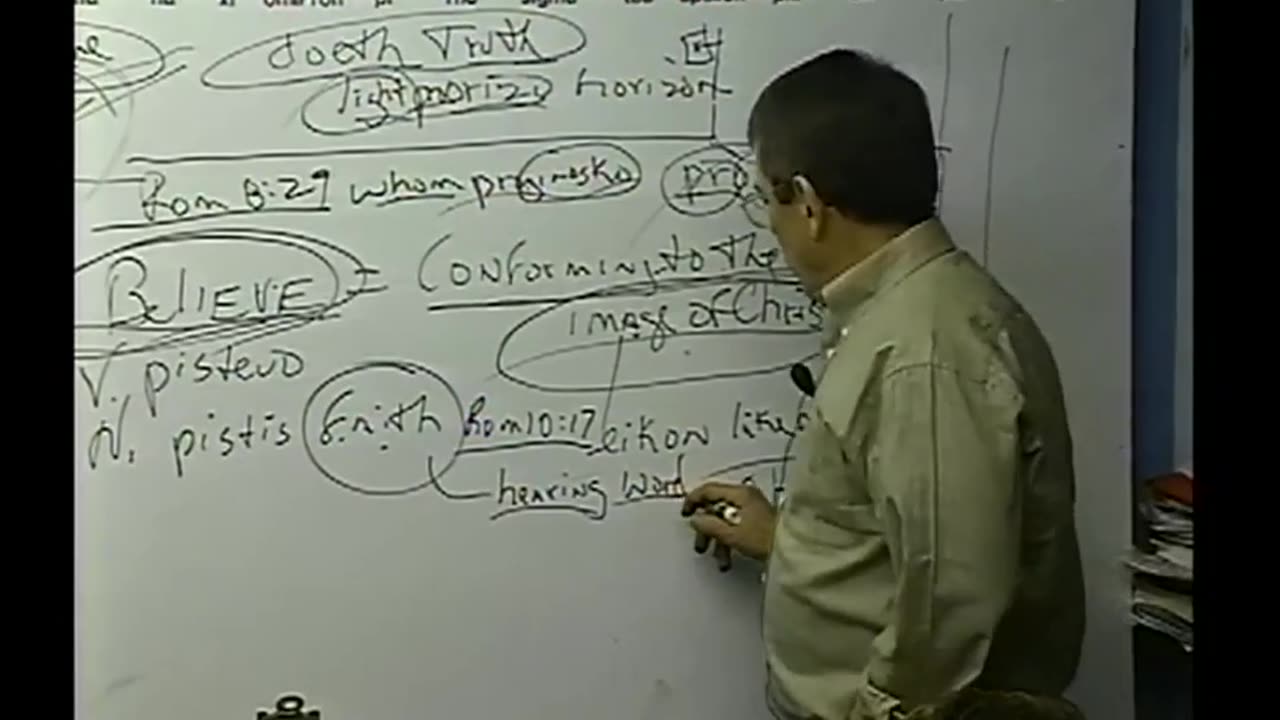 xi omicron pi rho sigma
doeth Truth
light horizo horizon
Rom 8:29 whom proginosko pro
BelIEVE = Conforming to the
image of Chris
V. pisteuo
N. pistis faith Rom 10:17 eikon like
hearing Word